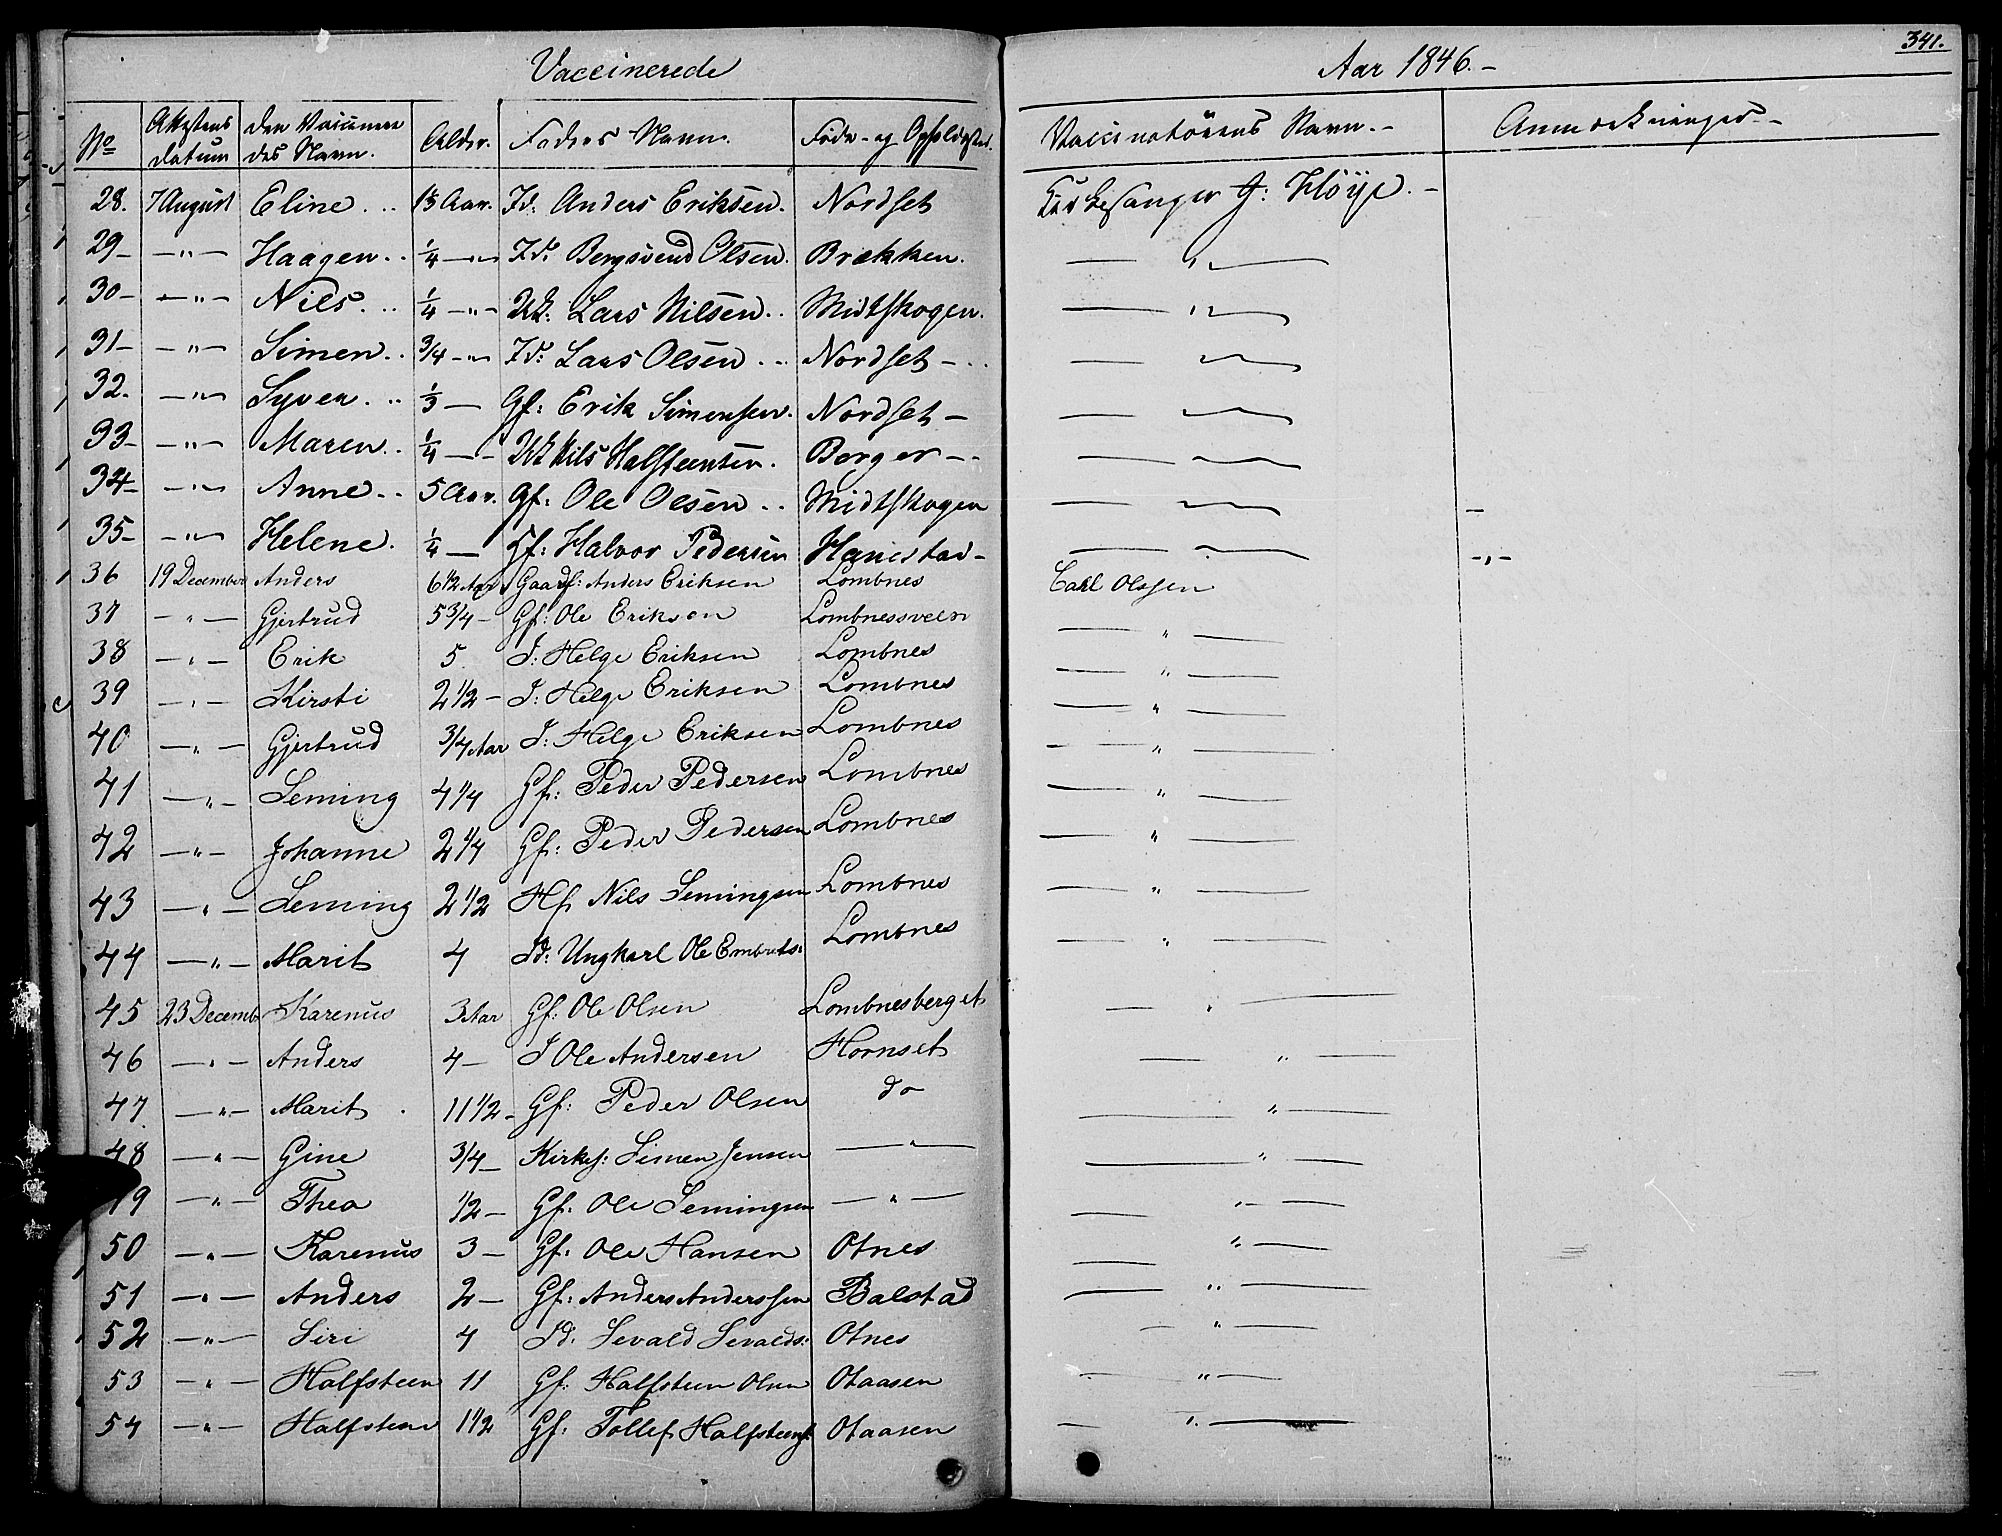 341.
Vaccinerede
Aar 1846.-
No Attestens Datum Den Vaccinere des Navn. Alder. Faders Navn. Føde- og Opholdssted. Vaccinatørens Navn.- Anmærkninger.-
28. 7 August Eline... Aar. Id: Anders Eriksen. Nordset Kirkesanger J: Kløye.-
29- -"- Haagen.. 1/4 -"- Id: Bergsvend Olsen. Brækken. - " -
30- -"- Nils... 1/4 -"- Lars Nilsen.. Midtskogen. - " -
31- -"- Simen.. 3/4 -"- Id: Lars Olsen... Nordset-.. - " -
32. -"- Syver... 1/3 - Gf: Erik Simensen. Nordset- -
33- -"- Maren.. 1/4 -- Nils Halfsteensen. Berger-- -
34- -"- Anne.. 5 Aar. Gf: Ole Olsen.. Midtskogen -
35- -"- Helene. 1/4 - Gf: Halvor Pedersen Hanestad- -
36 19 December Anders 6 1/2 Aar Gaardf: Anders Eriksen Lombnes Carl Olssen
37 -"- Gjertrud 5 3/4- Gf: Ole Eriksen Lombnessveen - " -
38 -"- Erik 5 I: Helge Eriksen Lombnes - " -
39 -"- Kirsti 2 1/2- I: Helge Eriksen Lombnes - " -
40 -"- Gjertrud 3/4 Aar I: Helge Eriksen Lombnes - " -
41 -"- Seming 4 1/4 Gf: Peder Pedersen Lombnes - " -
42 -"- Johanne 2 1/4 Gf: Peder Pedersen Lombnes - " -
43 -"- Seming 2 1/2 Hf Nils Semingsen Lombnes - " -
44 -"- Marit 4 Id: Ungkarl Ole Embrets: Lombnes - " -
45 23 Decemb Karenus 3 Aar Gf: Ole Olsen Lombnesberget - " -
46 -"- Anders 4- I Ole Andersen Hornset - " -
47. -"- Marit. 11 1/2- Gf: Peder Olsen do - " -
48 -"- Gine 3/4- Kirkes: Simen Jensen - " - - " -
49 -"- Thea 1/2- Gf: Ole Semingsen - " - - " -
50 -"- Karenus 3- Gf: Ole Hansen Otnes - " -
51 -"- Anders 2- Gf: Anders Anderssen Balstad - " -
52 -"- Siri 4 Id: Sevald Sevalds: Otnes - " -
53 -"- Halfsteen 11 Gf: Halfsteen Olsen Otaasen - " -
54 -"- Halfsteen 1 1/2 Gf: Tollef Halfsteens: Otaasen - " -